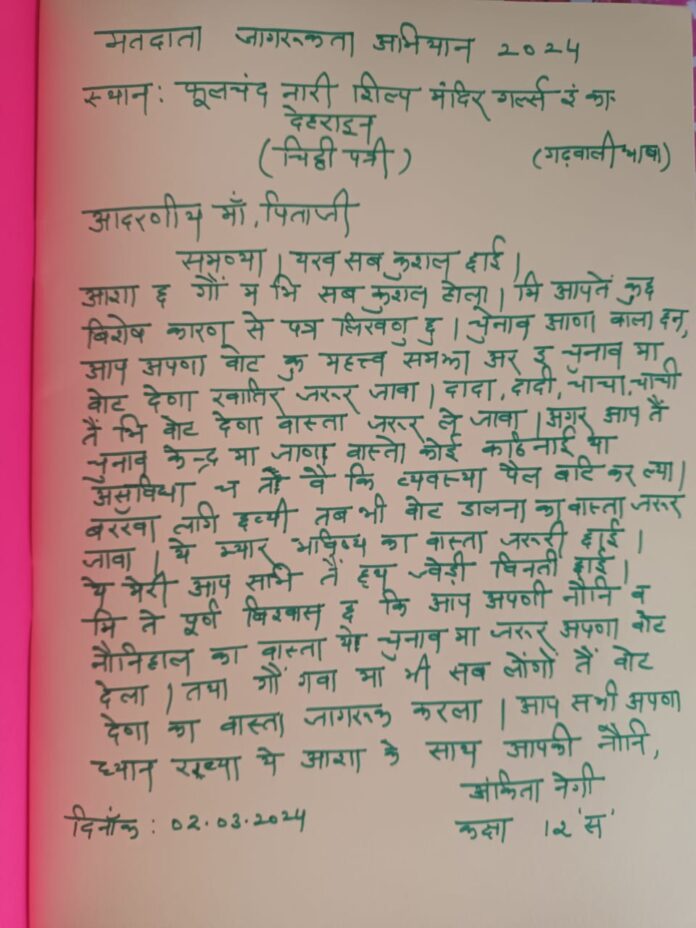 मतदाता जागरूकता अभियान 2024
स्थान: फूलचंद नारी शिल्प मंदिर गर्ल्स इं का.
देहरादून
(चिट्ठी पत्री) (गढ़वाली भाषा)
आदरणीय माँ, पिताजी
समन्या। यख सब कुशल छाई।
आशा छ गौं म भि सब कुशल होला। मि आपतें कुछ
विशेष कारण से पत्र लिखणु छु। चुनाव आणा वाला छन,
आप अपणा वोट कु महत्त्व समझा अर इ चुनाव मा
वोट देणा खातिर जरूर जावा। दादा, दादी, चाचा, चाची
तैं भि वोट देणा वास्ता जरूर ले जावा। अगर आप तैं
चुनाव केन्द्र मा जाणा वास्ता कोई कठिनाई या
असुविधा च तो वै कि व्यवस्था पैल बटि कर ल्या।
बरखा लगि हव्यी तब भी वोट डालना का वास्ता जरूर
जावा। ये म्यार भविष्य का वास्ता जरूरी छाई।
ये मेरी आप सभि तैं हथ ज्वेड़ी विनती छाई।
मि ते पूर्ण विश्वास छ कि आप अपणी नौनि व
नौनिहाल का वास्ता ये चुनाव मा जरूर अपणा वोट
देला। तथा गौं गवा मा भी सब लोंगो तैं वोट
देणा का वास्ता जागरूक करला। आप सभी अपणा
ध्यान रख्या ये आशा के साथ आपकी नौनि,
अंकिता नेगी
दिनाँक: 02.03.2024 कक्षा 12 'स'